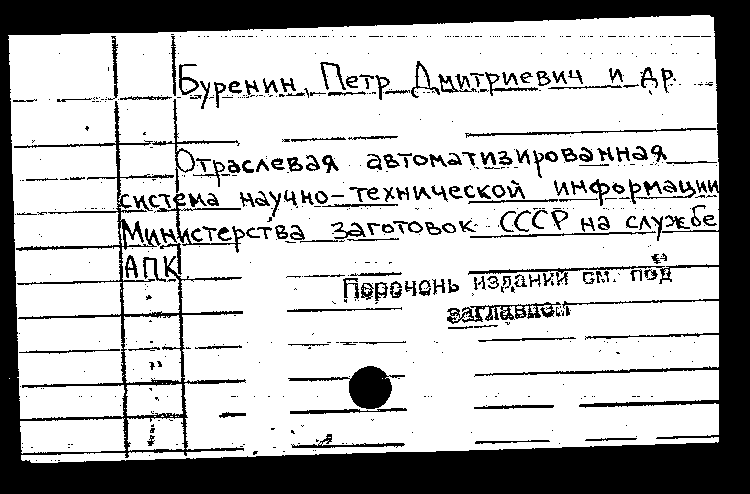 Буренин, Петр Дмитриевич и др.
Отраслевая автоматизированная
система научно-технической информации
Министерства заготовок СССР на службе
АПК
Перечень изданий см. под
заглавием